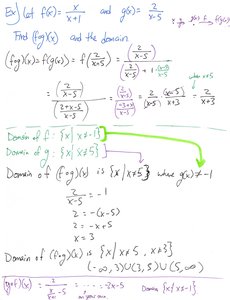 Ex] Let f(x) = x/(x+1) and g(x) = 2/(x-5)
Find (f∘g)(x) and the domain.
(f∘g)(x) = f(g(x)) = f(2/(x-5)) = (2/(x-5)) / (2/(x-5) + 1·(x-5)/(x-5))
= (2/(x-5)) / ((2+x-5)/(x-5)) = (2/(x-5)) / ((-3+x)/(x-5)) = 2/(x-5) · (x-5)/(x-3) = 2/(x-3)
when x≠5
Domain of f : {x | x≠-1}
Domain of g : {x | x≠5}
Domain of (f∘g)(x) is {x | x≠5} where g(x)≠-1
2/(x-5) = -1
2 = -(x-5)
2 = -x+5
x = 3
Domain of (f∘g)(x) is {x | x≠5, x≠3}
(-∞,3)∪(3,5)∪(5,∞)
(g∘f)(x) =
on your own.
Domain {x | x≠-1,